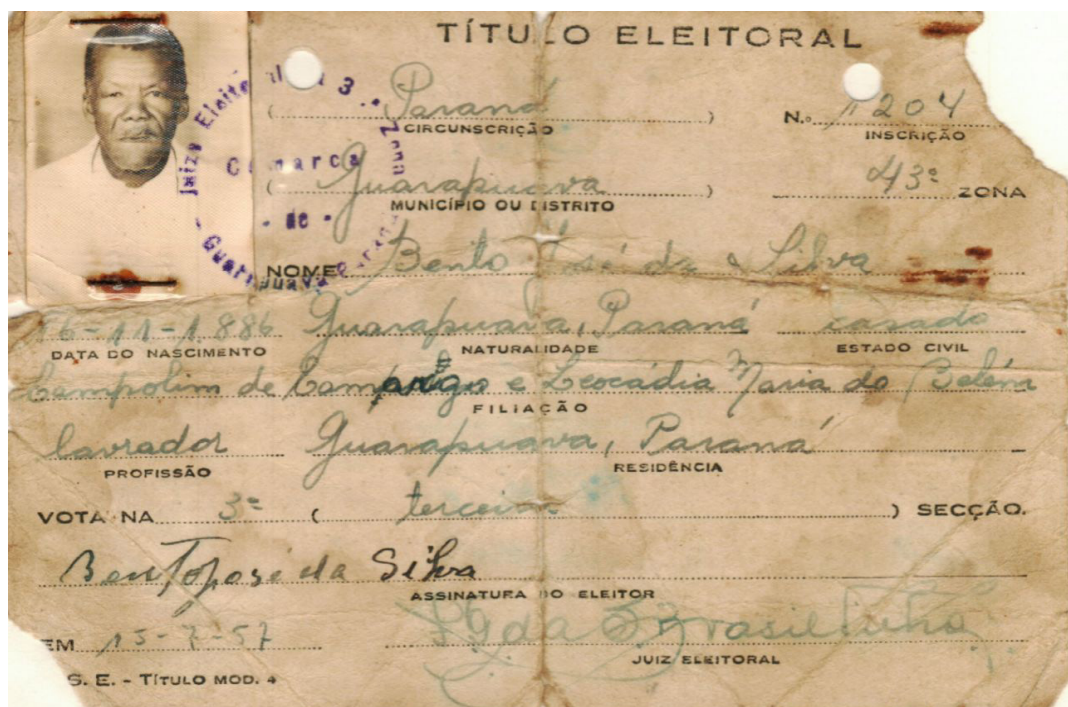 TÍTULO ELEITORAL
Juizo Eleitoral da 3.ª Zona
Comarca
- de -
Guarapuava - Paraná
( Paraná )
CIRCUNSCRIÇÃO
N.º 1204
INSCRIÇÃO
( Guarapuava )
MUNICÍPIO OU DISTRITO
43ª ZONA
NOME Bento José da Silva
16-11-1.886 Guarapuava, Paraná casado
DATA DO NASCIMENTO NATURALIDADE ESTADO CIVIL
Campolim de Camargo e Leocádia Maria de Belém
FILIAÇÃO
lavrador Guarapuava, Paraná
PROFISSÃO RESIDÊNCIA
VOTA NA 3ª ( terceira ) SECÇÃO.
Bento Jose da Silva
ASSINATURA DO ELEITOR
EM 15-7-57
JUIZ ELEITORAL
S. E. - TÍTULO MOD. 4